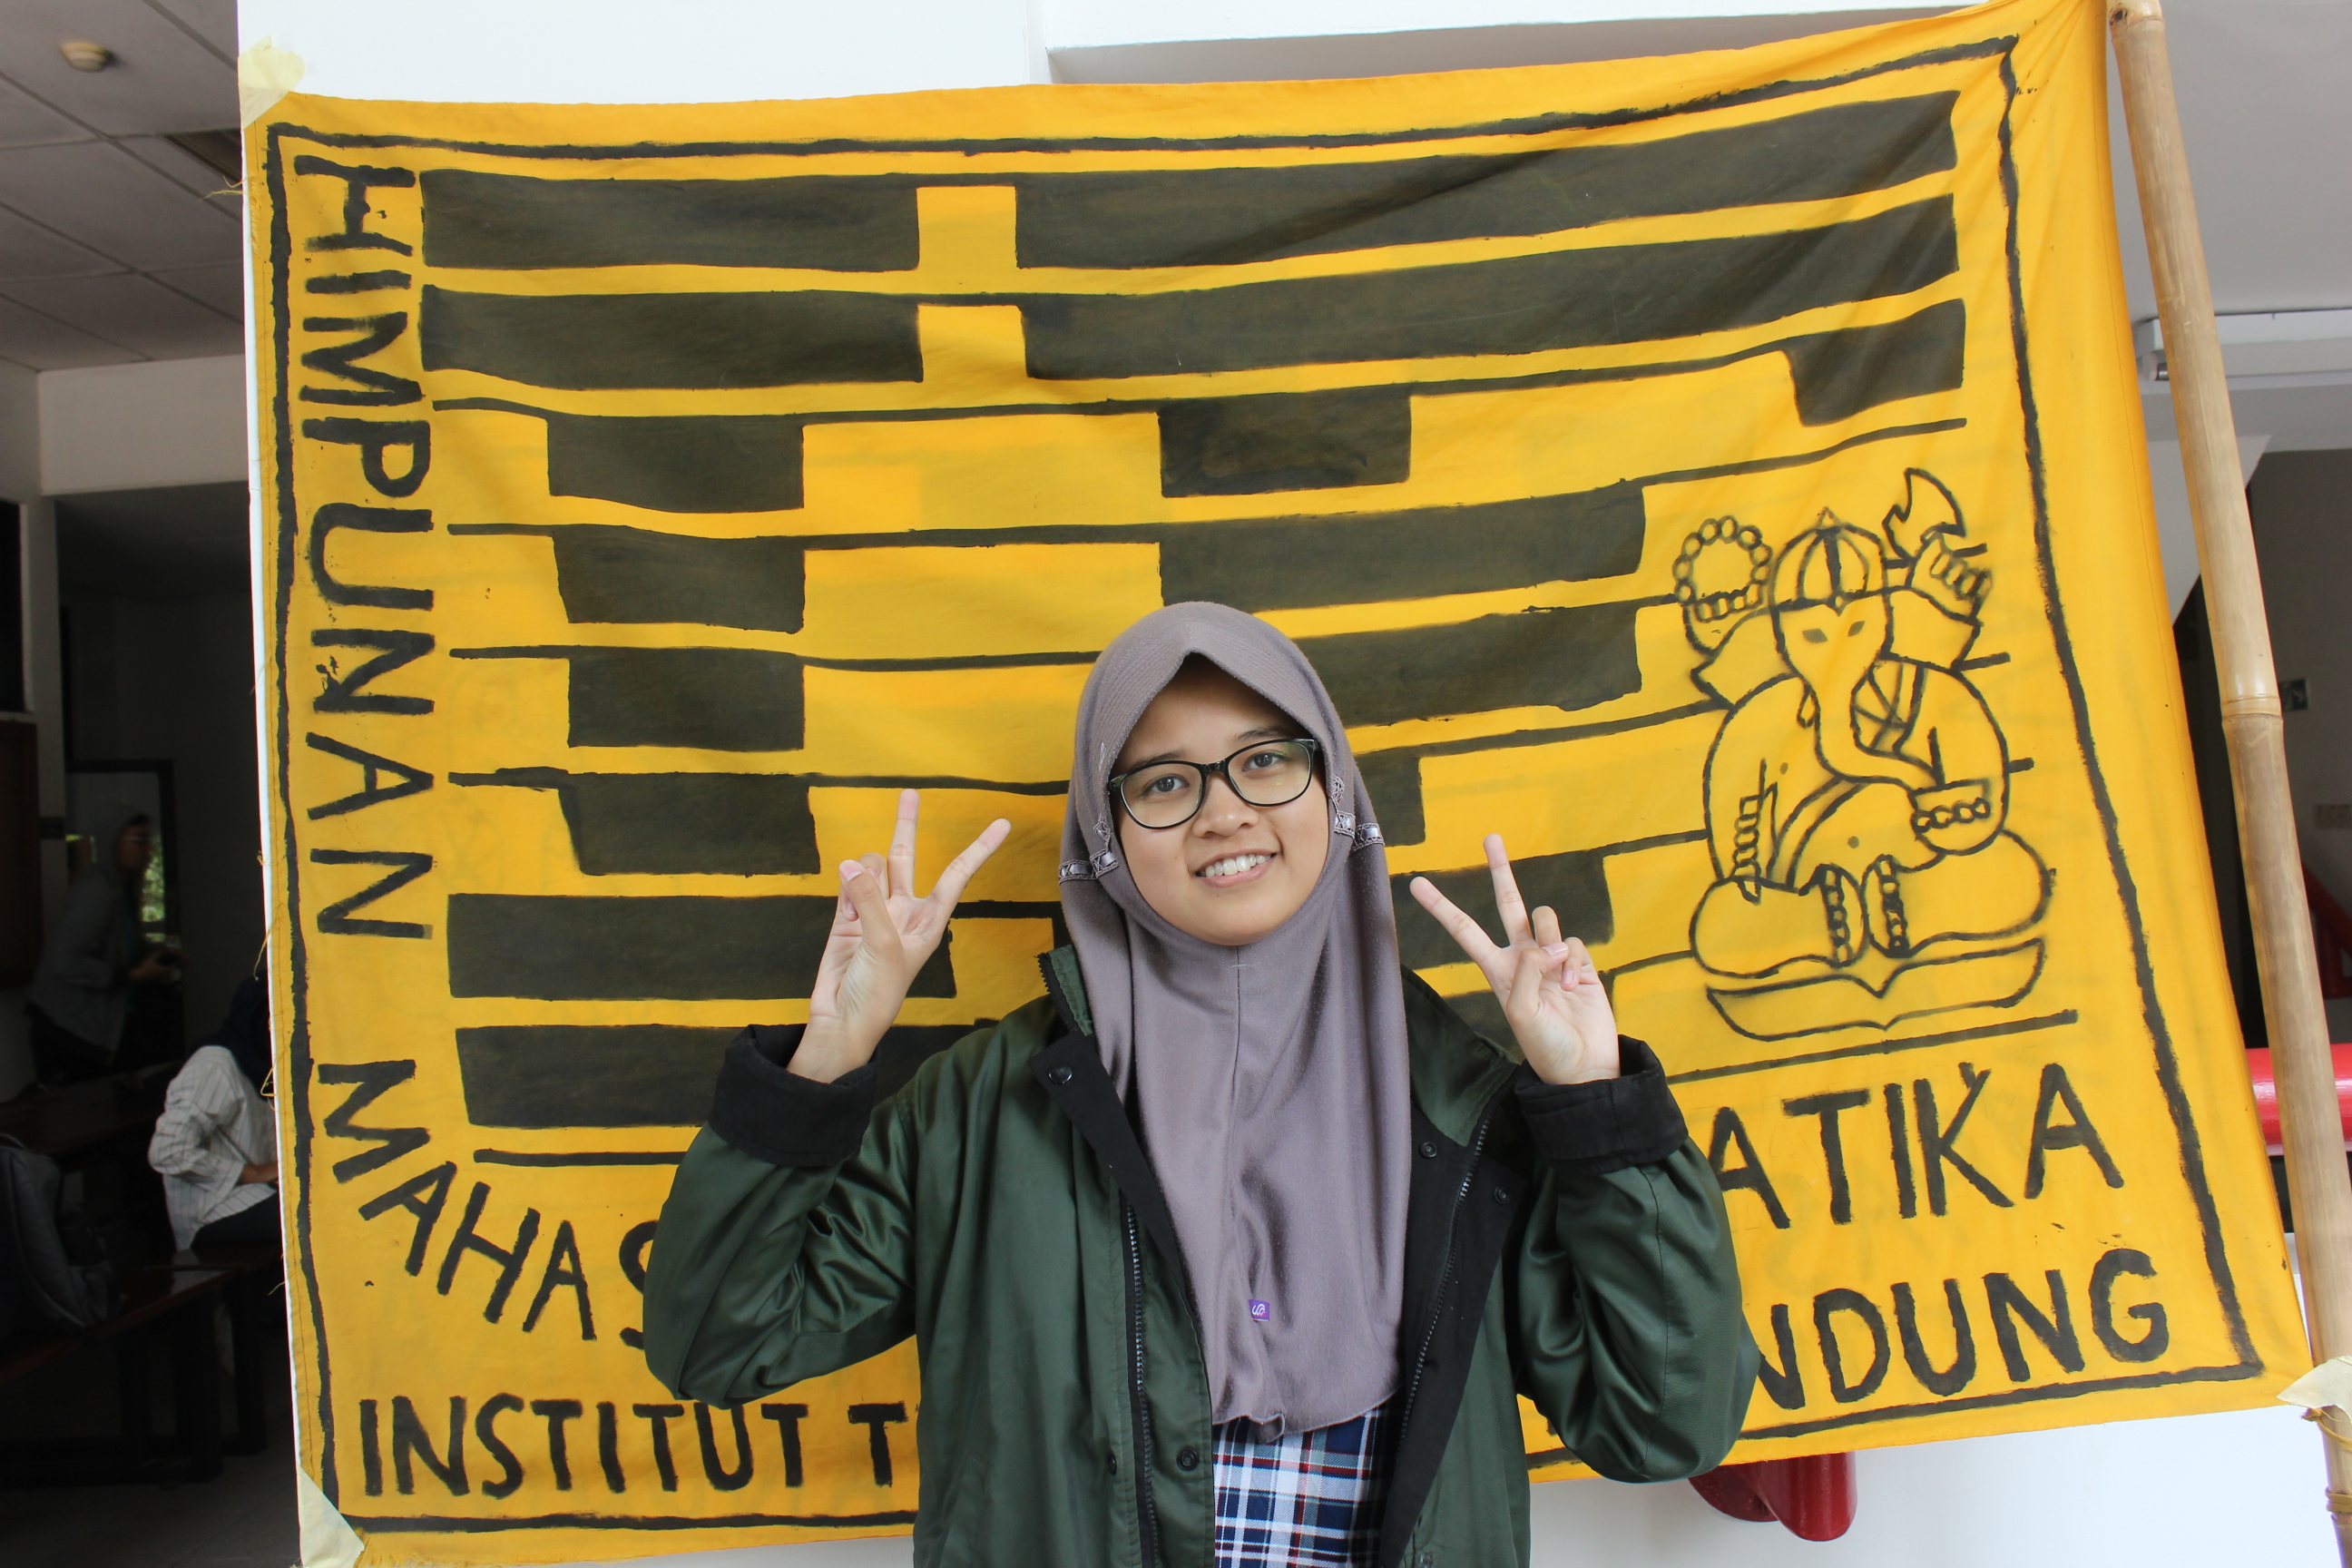 HIMPUNAN MAHAS ATIKA
INSTITUT T NDUNG